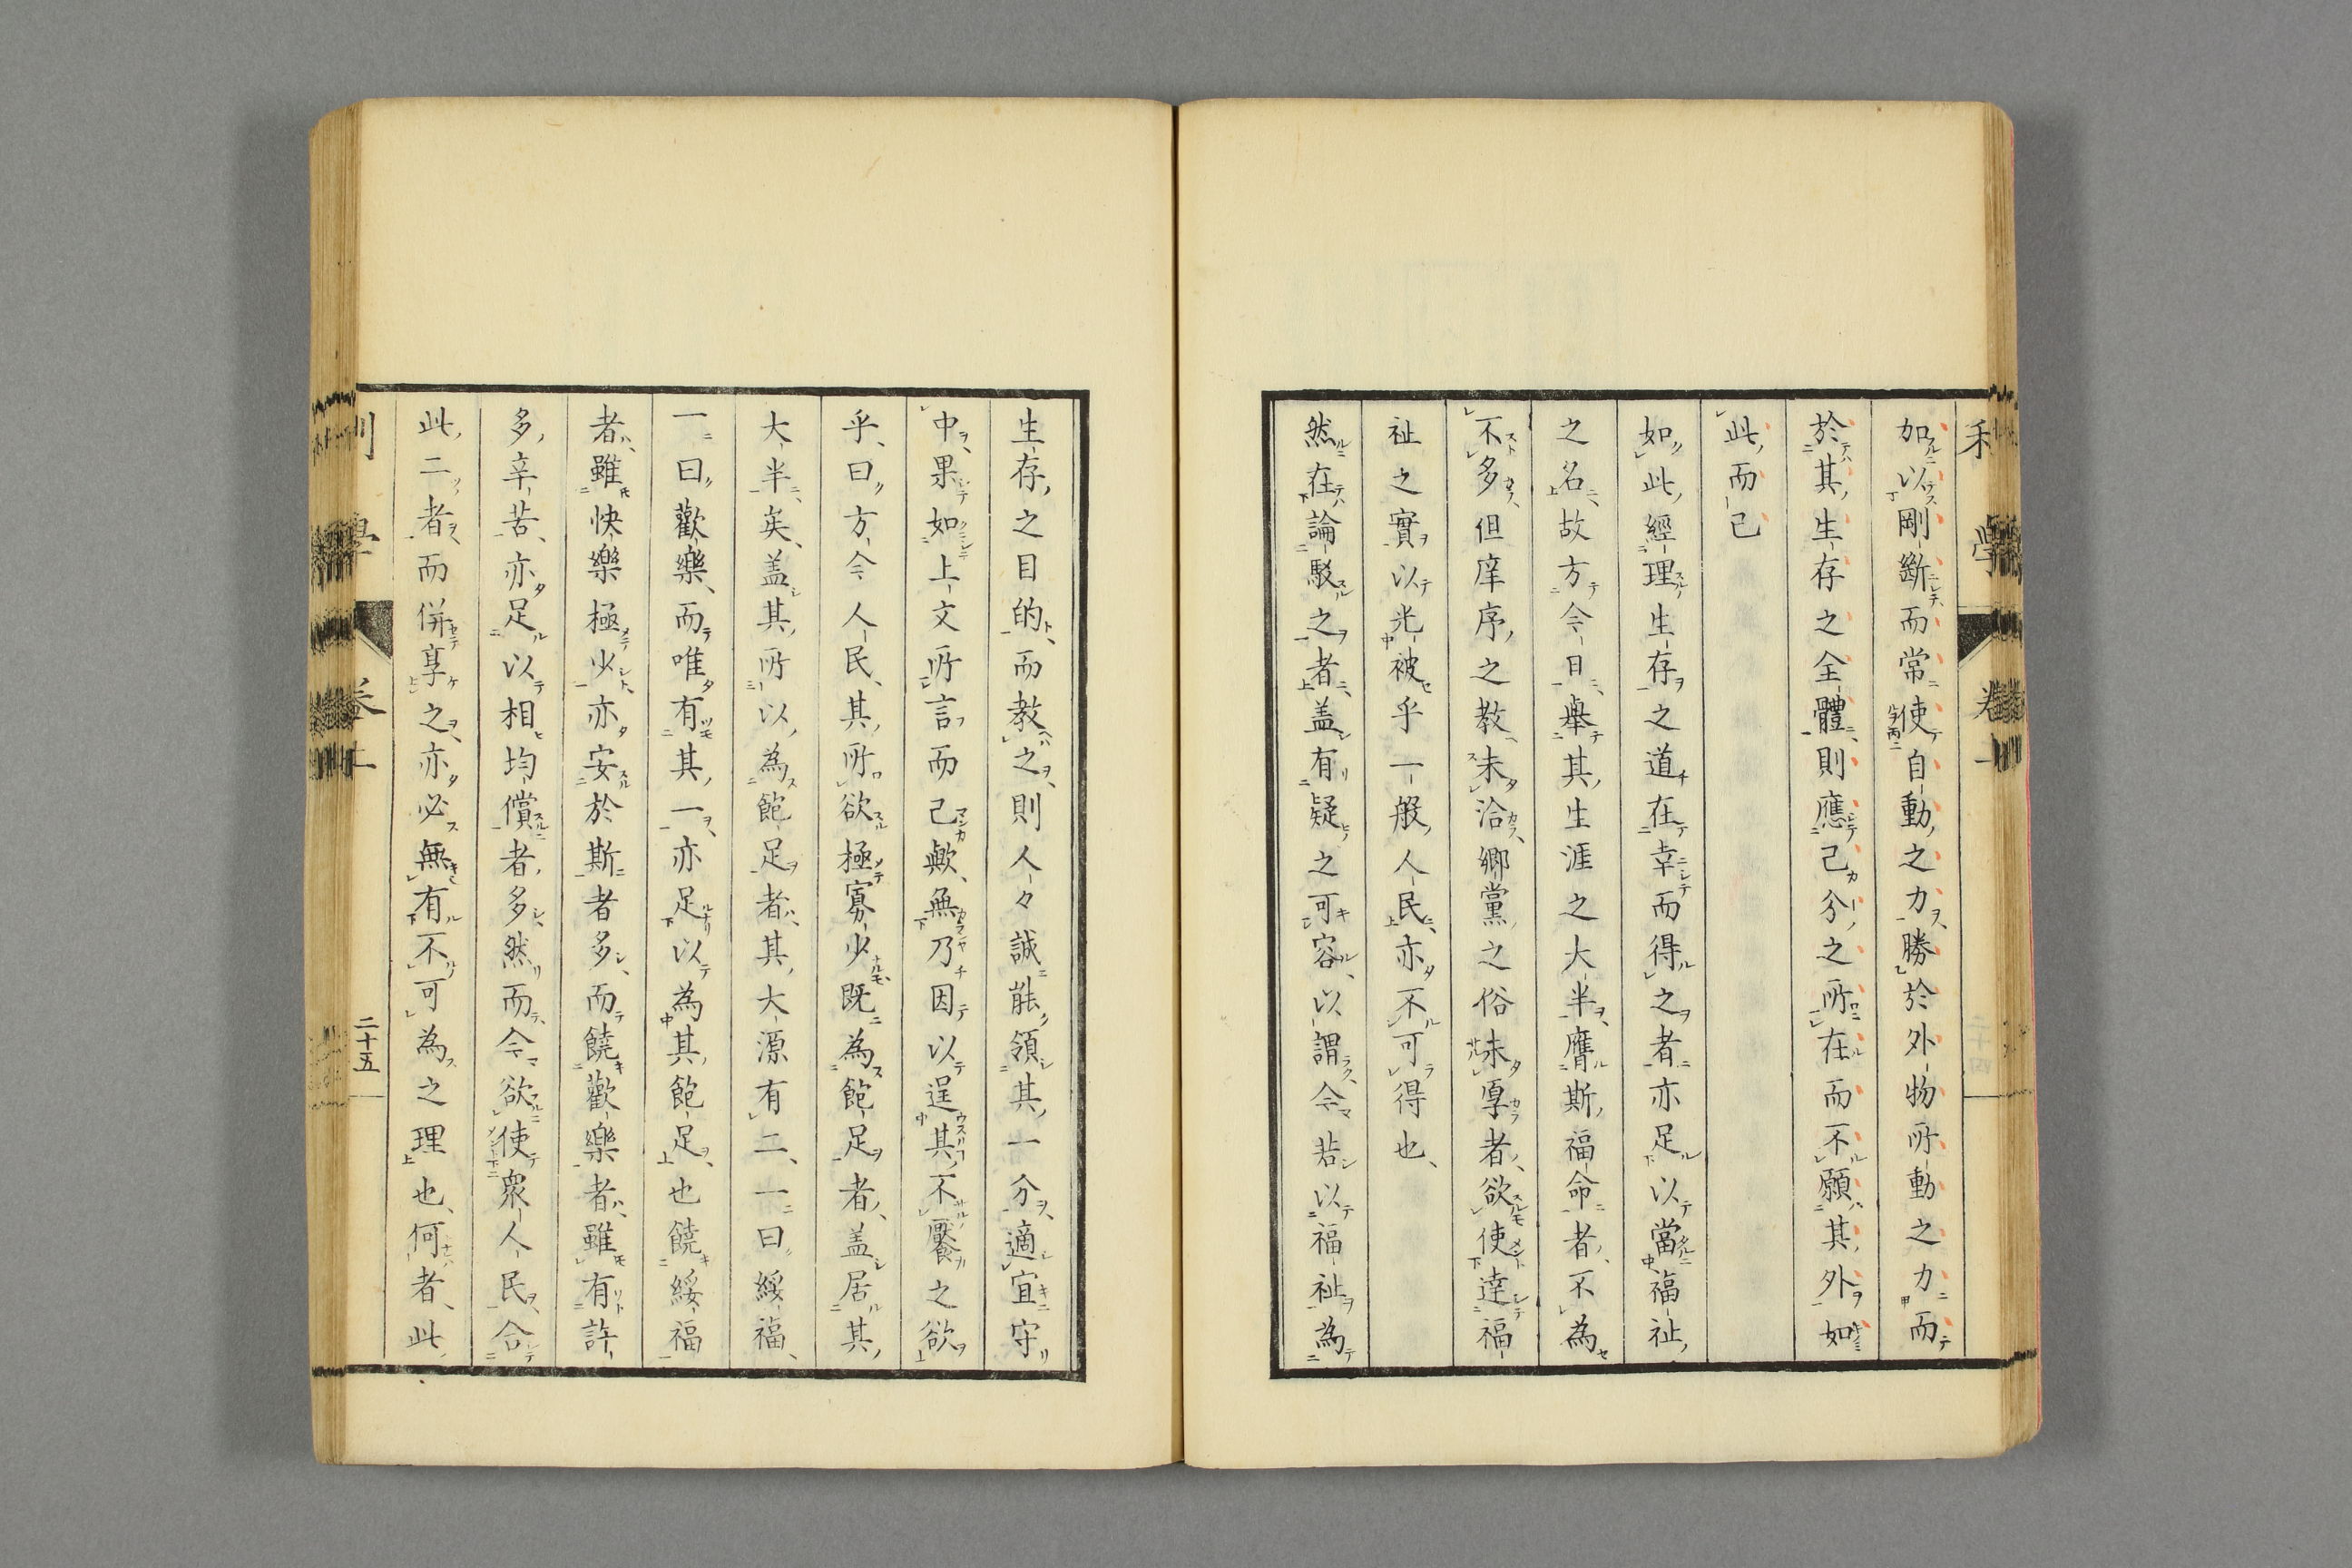 加以剛斷而常使自動之力勝於外物所動之力而
於其生存之全體則應己分之所在而不願其外如
此而已
如此經理生存之道在幸而得之者亦足以當福祉
之名故方今日舉其生涯之大半膺斯福命者不為
不多但庠序之教未洽鄉黨之俗未厚者欲使達福
祉之實以光被乎一般人民亦不可得也
然在論駁之者盖有疑之可容以謂今若以福祉為
生存之目的而教之則人々誠能領其一分適宜守
中果如上文所言而已歟無乃因以逞其不饜之欲
乎曰方今人民其所欲極寡少既為飽足者盖居其
大半矣盖其所以為飽足者其大源有二一曰綏福
一曰歡樂而唯有其一亦足以為其飽足也饒綏福
者雖快樂極少亦安於斯者多而饒歡樂者雖有許
多辛苦亦足以相均償者多然而今欲使衆人民合
此二者而併享之亦必無有不可為之理也何者此
利學 卷上 二十五